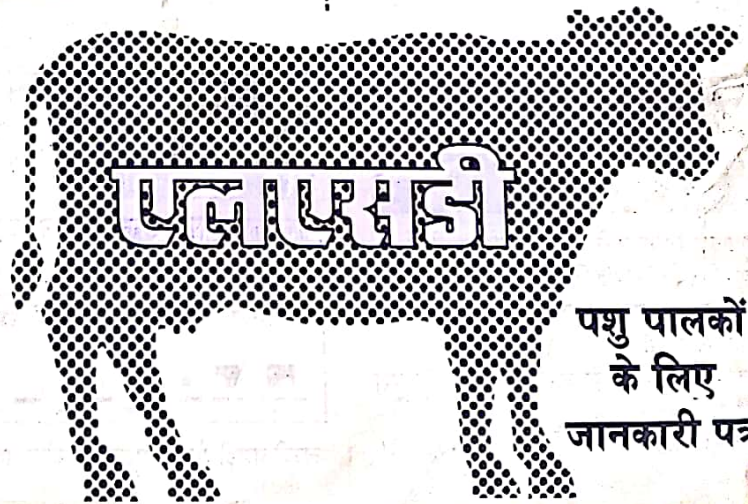 एलएसडी
पशु पालकों
के लिए
जानकारी पत्र